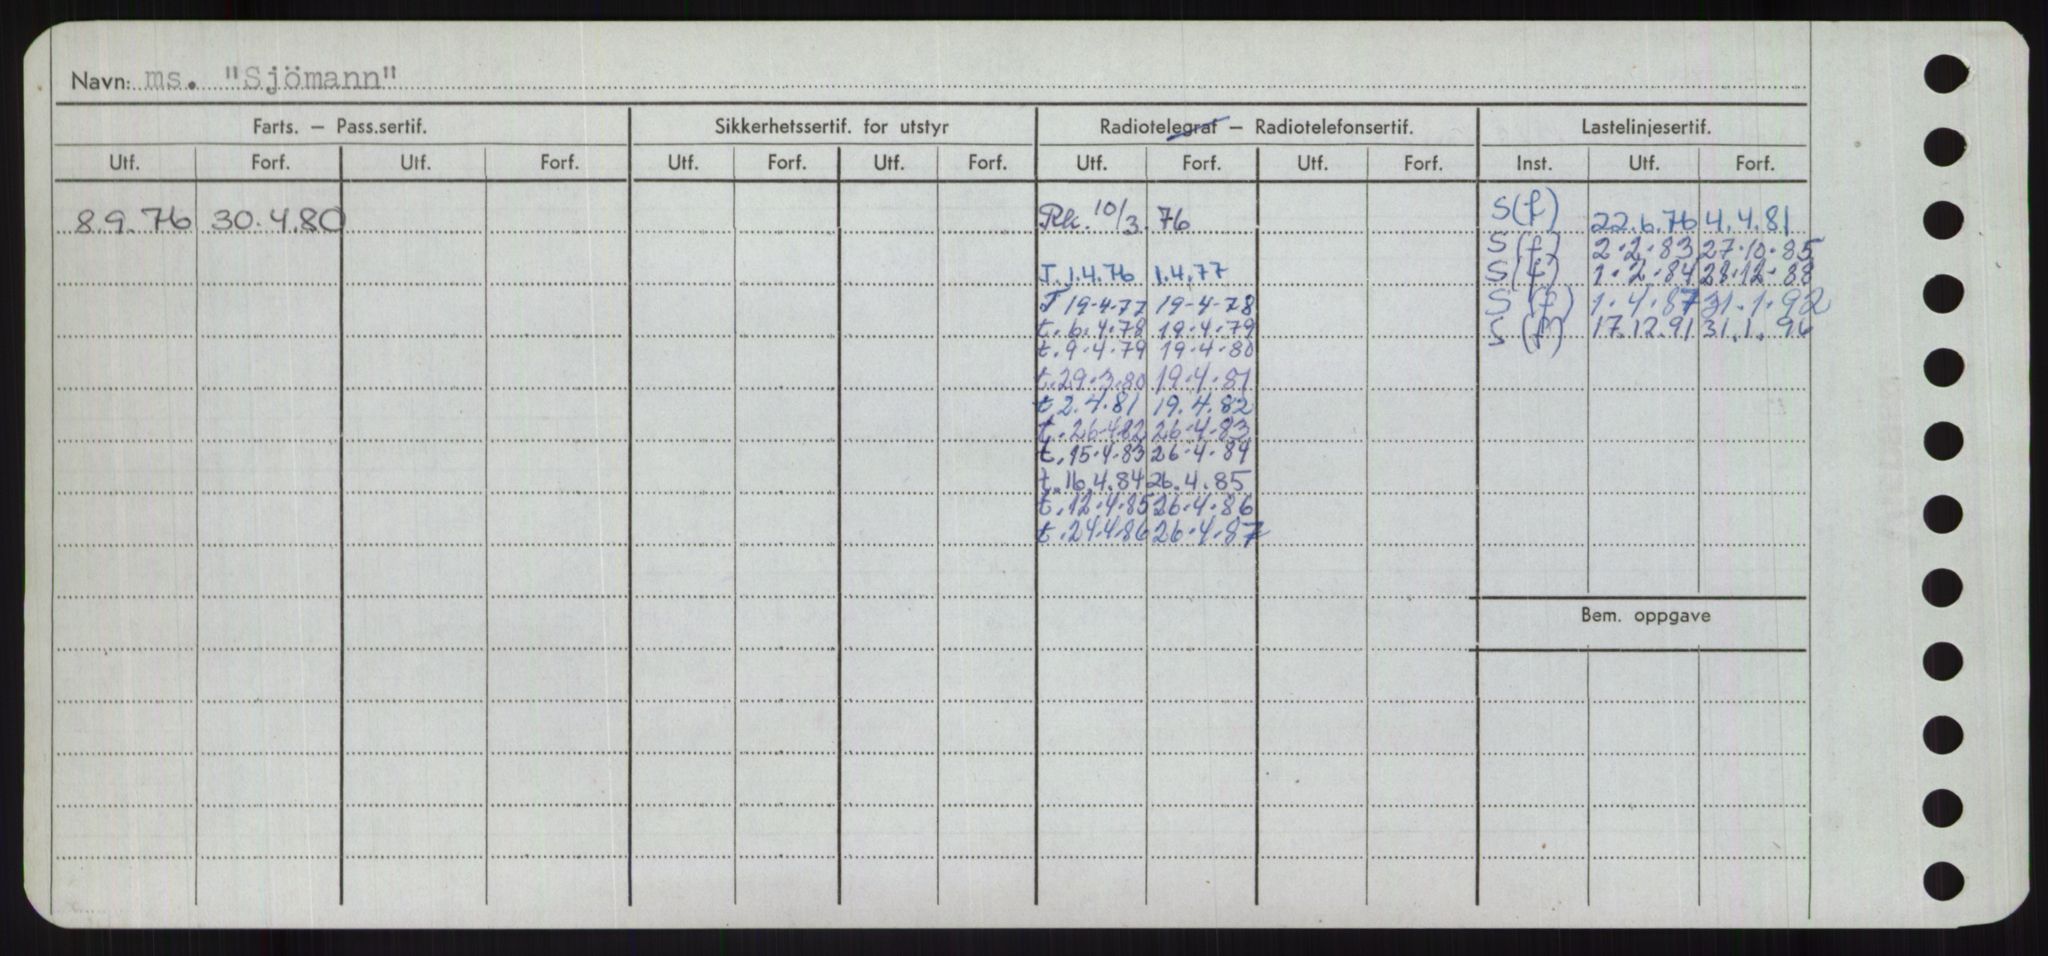 Navn: ms. "Sjömann"
Farts. — Pass.sertif. Sikkerhetssertif. for utstyr Radiotelegraf — Radiotelefonsertif. Lastelinjesertif.
Utf. Forf. Utf. Forf. Utf. Forf. Utf. Forf. Utf. Forf. Utf. Forf. Inst. Utf. Forf.
8.9.76 30.4.80 Rk. 10/3.76 S(f) 22.6.76 4.4.81
S(f) 2.2.83 27.10.85
T. 1.4.76 1.4.77 S(f) 1.2.84 28.12.88
T 19-4-77 19-4-78 S(f) 1.4.87 31.1.92
t. 6.4.78 19.4.79 S(f) 17.12.91 31.1.96
t. 9.4.79 19.4.80
t. 29.3.80 19.4.81
t 2.4.81 19.4.82
t. 26.4.82 26.4.83
t. 15.4.83 26.4.84
t. 16.4.84 26.4.85
t. 12.4.85 26.4.86
t. 24.4.86 26.4.87
Bem. oppgave